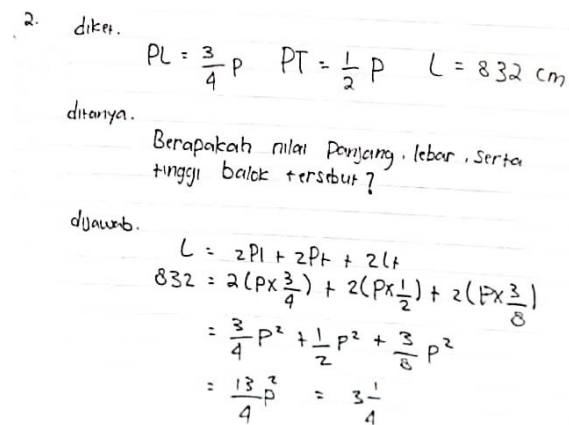 2. diket.
PL = 3/4 P PT = 1/2 P L = 832 cm
ditanya.
Berapakah nilai panjang, lebar, serta
tinggi balok tersebut?
dijawab.
L = 2Pl + 2Pt + 2lt
832 = 2(P×3/4) + 2(P×1/2) + 2(P×3/8)
= 3/4 P² + 1/2 P² + 3/8 P²
= 13/4 P² = 3 1/4